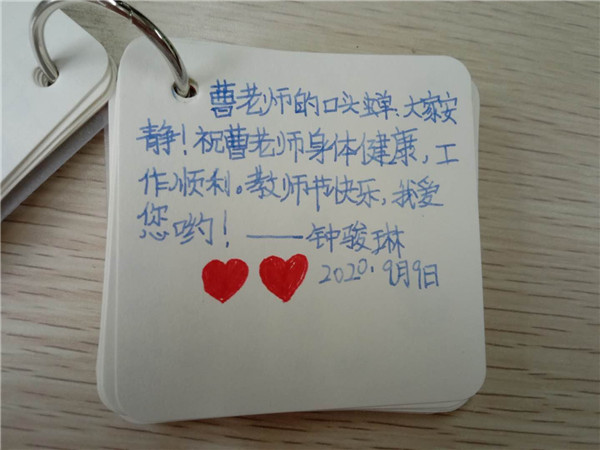 曹老师的口头蝉.大家安
静!祝曹老师身体健康,工
作顺利。教师节快乐,我爱
您哟!——钟骏琳
2020.9月9日